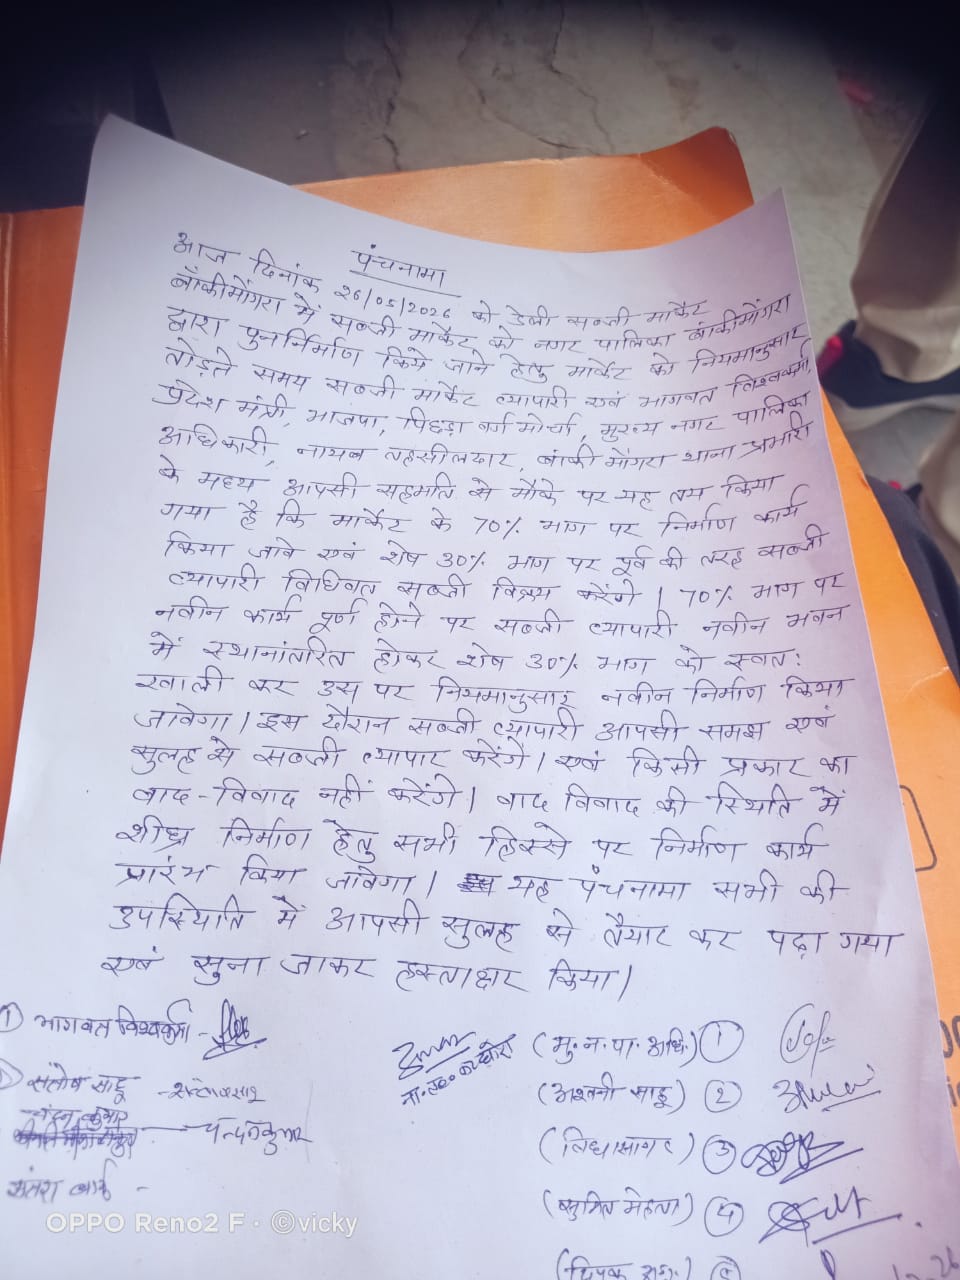 पंचनामा
आज दिनांक 26/05/2026 को डेली सब्जी मार्केट
बाँकीमोंगरा में सब्जी मार्केट को नगर पालिका बांकीमोंगरा
द्वारा पुनर्निर्माण किये जाने हेतु मार्केट को नियमानुसार
तोड़ते समय सब्जी मार्केट व्यापारी एवं भागवत विश्वकर्मा,
प्रदेश मंत्री, भाजपा, पिछड़ा वर्ग मोर्चा, मुख्य नगर पालिका
अधिकारी, नायब तहसीलदार, बांकी मोंगरा थाना प्रभारी
के मध्य आपसी सहमति से मौके पर यह तय किया
गया है कि मार्केट के 70% भाग पर निर्माण कार्य
किया जावे एवं शेष 30% भाग पर पूर्व की तरह सब्जी
व्यापारी विधिवत सब्जी विक्रय करेंगे। 70% भाग पर
नवीन कार्य पूर्ण होने पर सब्जी व्यापारी नवीन भवन
में स्थानांतरित होकर शेष 30% भाग को स्वतः
खाली कर उस पर नियमानुसार नवीन निर्माण किया
जावेगा। इस दौरान सब्जी व्यापारी आपसी समझ एवं
सुलह से सब्जी व्यापार करेंगे। एवं किसी प्रकार का
वाद-विवाद नहीं करेंगे। वाद विवाद की स्थिति में
शीघ्र निर्माण हेतु सभी हिस्से पर निर्माण कार्य
प्रारंभ किया जावेगा। यह पंचनामा सभी की
उपस्थिति में आपसी सुलह से तैयार कर पढ़ा गया
एवं सुना जाकर हस्ताक्षर किया।
① भागवत विश्वकर्मा -
(मु.न.पा. अधि.) ①
संतोष साहू -
(अश्वनी साहू) ②
चंदन कुमार — चन्दनकुमार
(विद्यासागर) ③
(सुमित मेहता) ④
OPPO Reno2 F · ©vicky